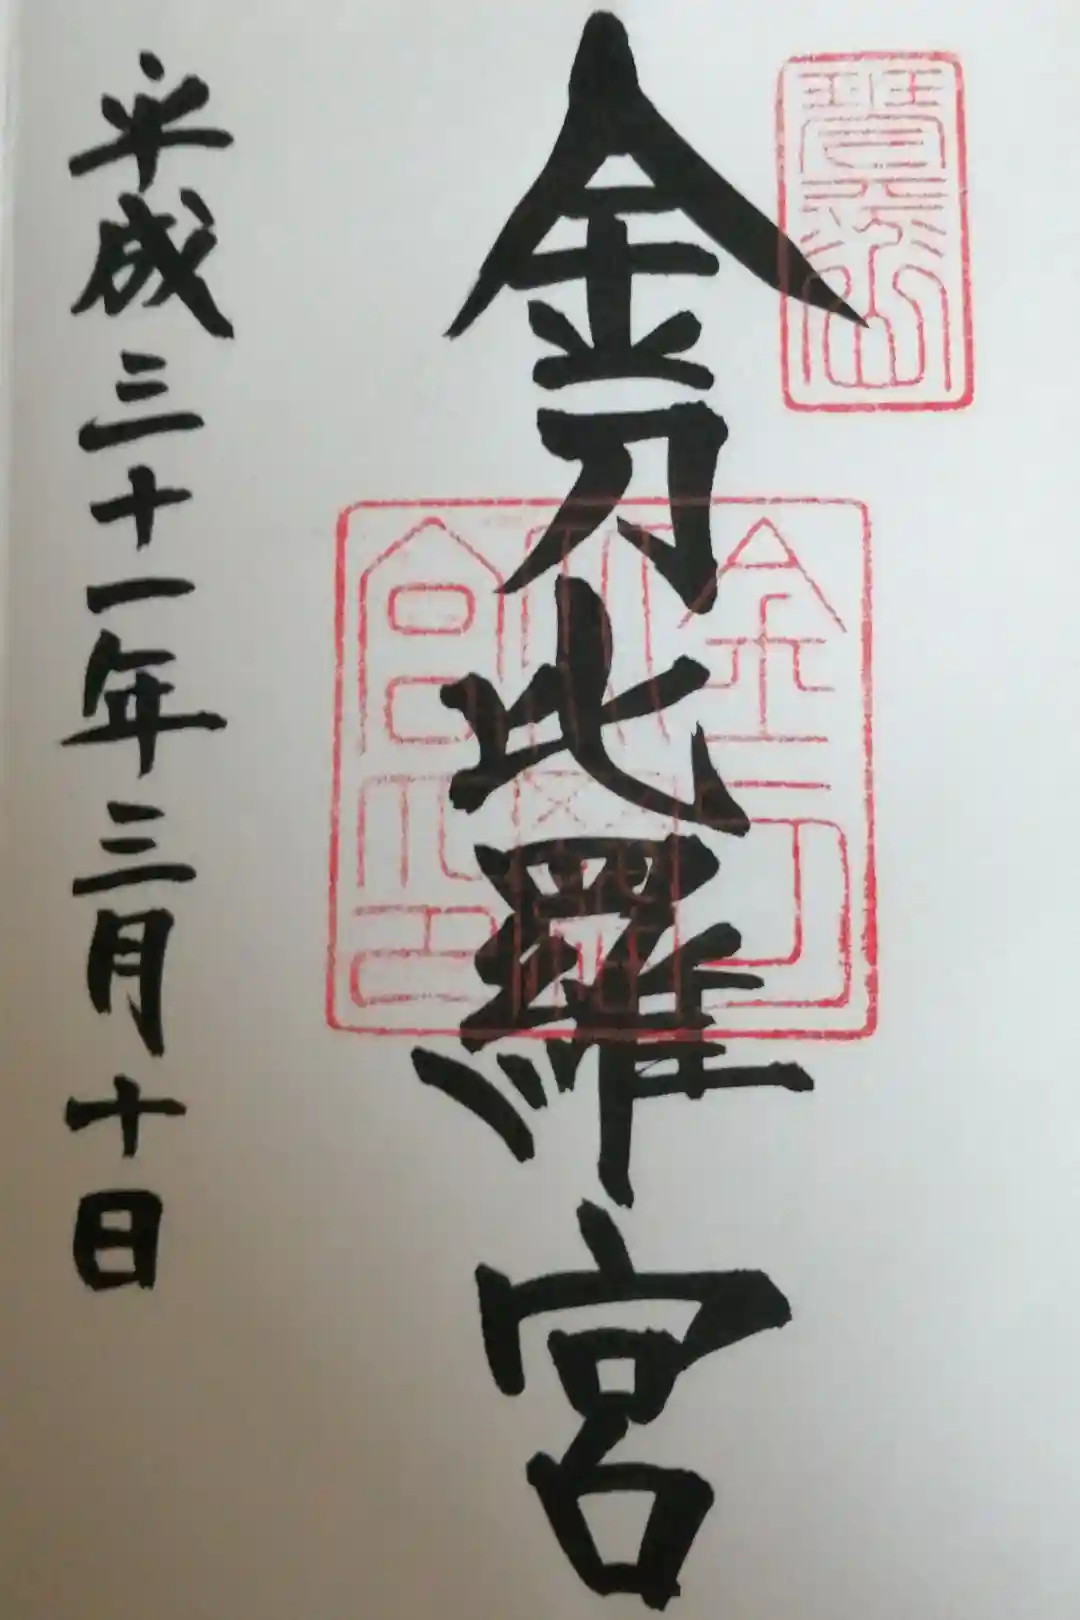 金刀比羅宮
金刀比羅宮之印
平成三十一年三月十日